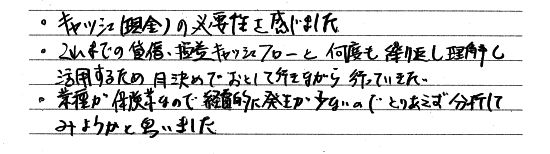 ・キャッシュ(現金)の必要性を感じました
・これまでの貸借、損益キャッシュフローと何度も繰り返し理解し
活用するため 月決めでおとして行きながら 行っていきたい
・業種が保険業なので 経費的に発生が少ないので とりあえず分析して
みようかと思いました